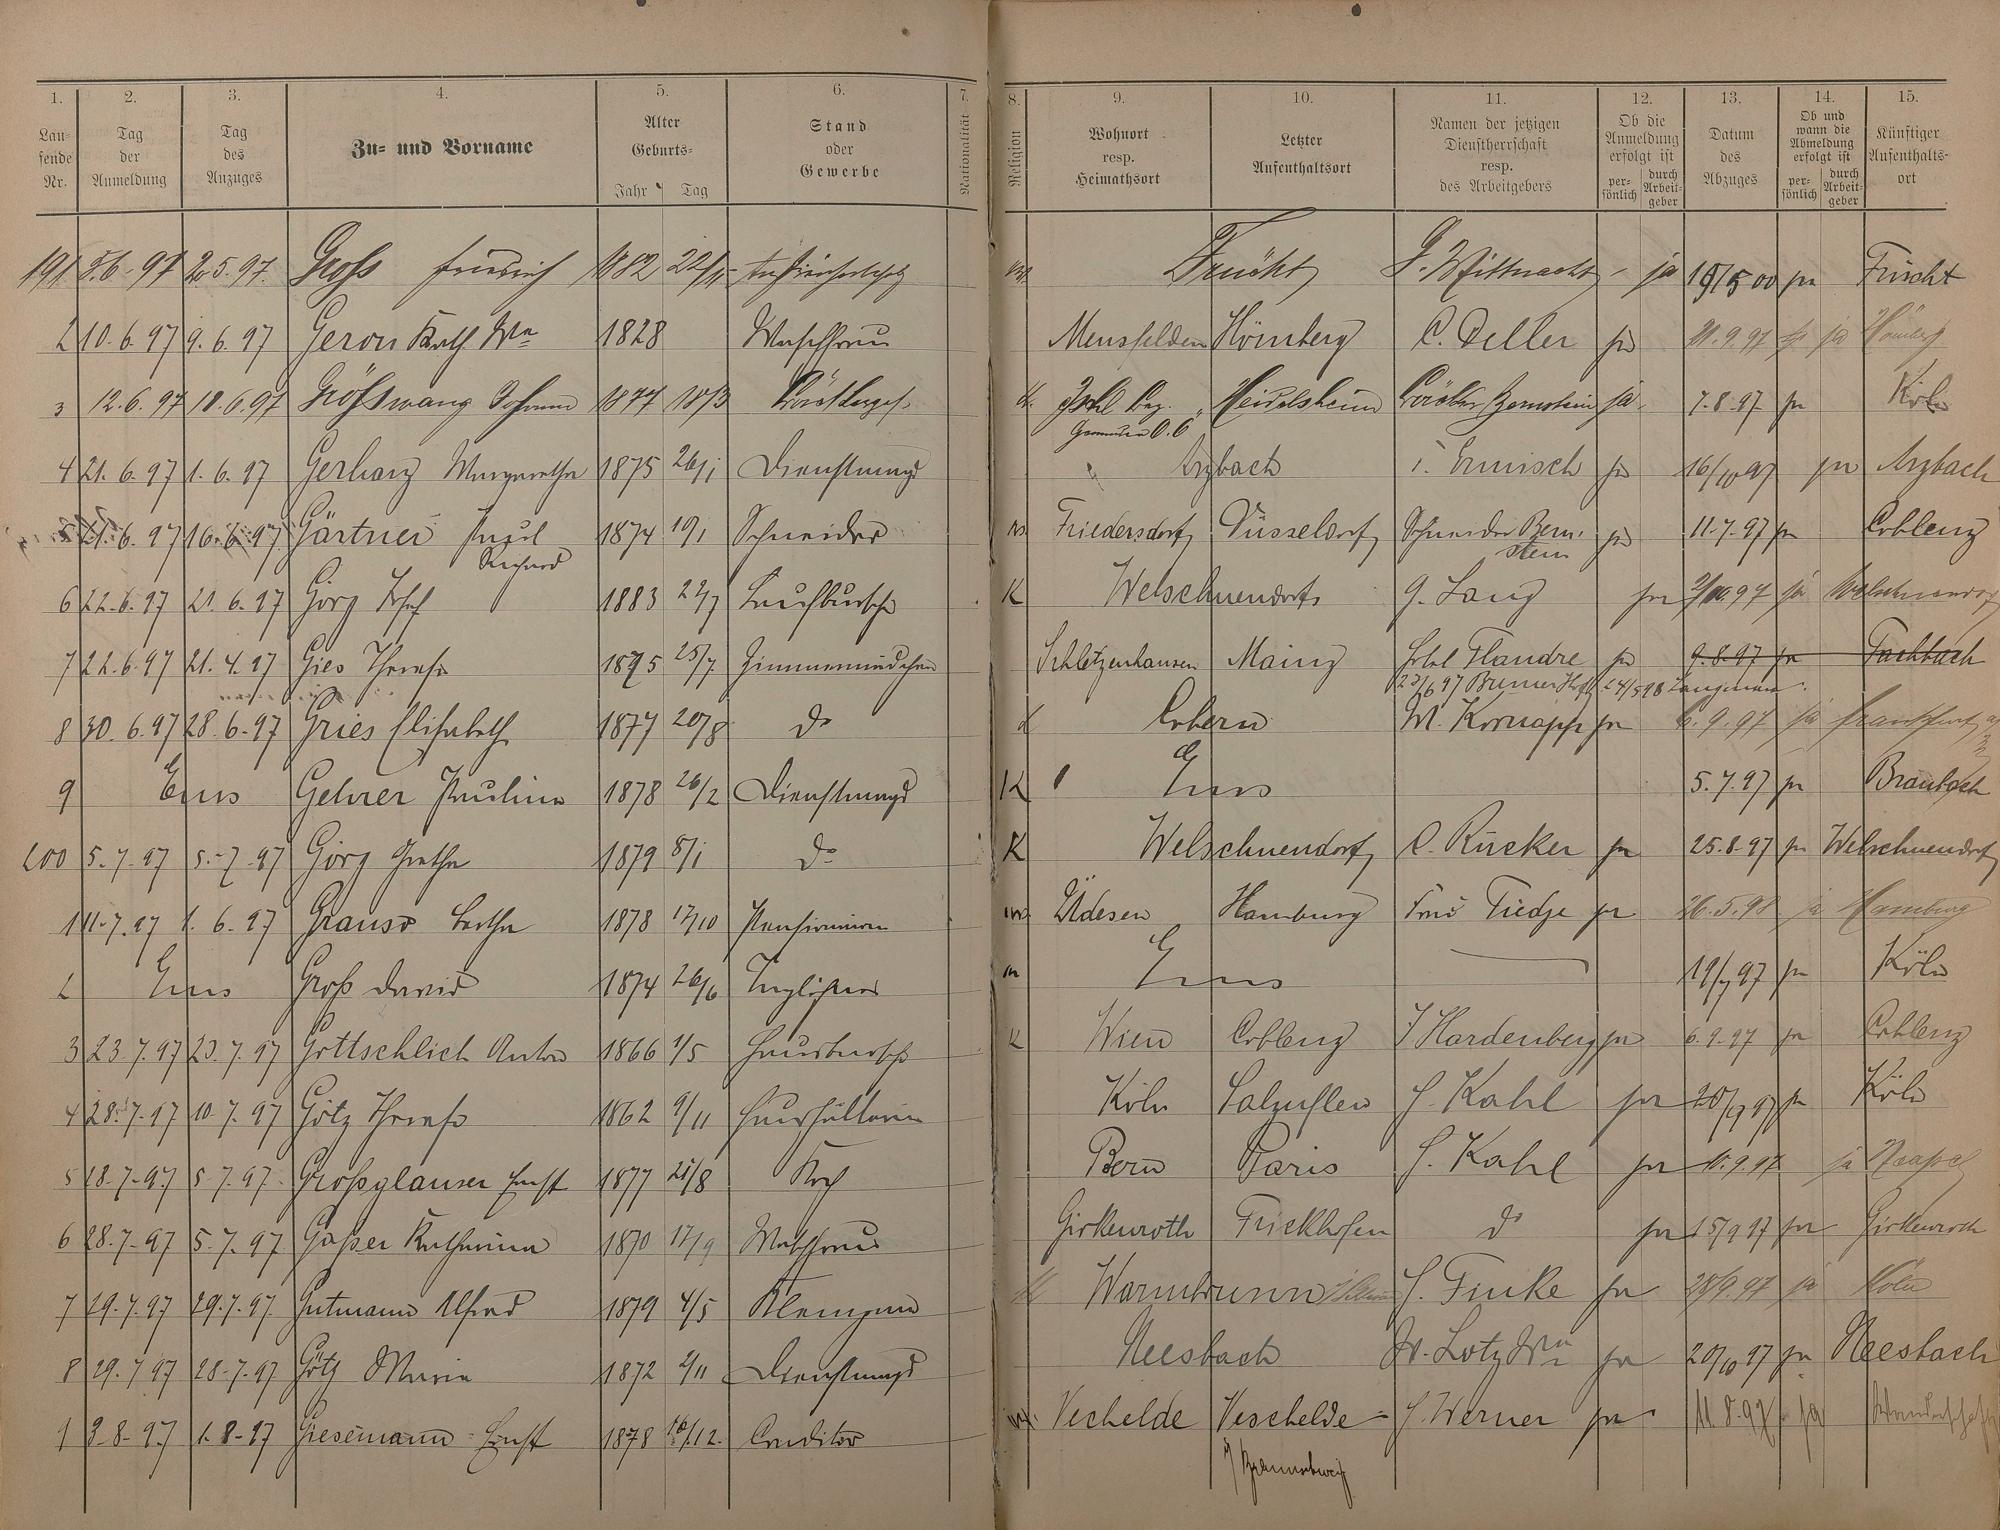 1. 2. 3. 4. 5. 6. 7. 8. 9. 10. 11. 12. 13. 14. 15.
Lau-
fende
Nr.
Tag
der
Anmeldung
Tag
des
Anzuges
Zu- und Vorname
Alter
Geburts-
Jahr Tag
Stand
oder
Gewerbe
Nationalität
Religion
Wohnort
resp.
Heimathsort
Letzter
Aufenthaltsort
Namen der jetzigen
Dienstherrschaft
resp.
des Arbeitgebers
Ob die
Anmeldung
erfolgt ist
per-
sönlich
durch
Arbeit-
geber
Datum
des
Abzuges
Ob und
wann die
Abmeldung
erfolgt ist
per-
sönlich
durch
Arbeit-
geber
Künftiger
Aufenthalts-
ort
191 5.6.97 2.5.97. Gross Friedrich 1882 Frücht J. Wittnacht ja Frücht
2 10.6.97 9.6.97 Geron Kath. Ww 1828 Waschfrau Mensfelden Hömberg C. Deller ja 21.9.97 ja Hömberg
3 12.6.97 Grösswang Johann 1877 18/3 Heidelsheim Bernstein ja 7.8.97 ja Köln
4 21.6.97 1.6.97 Gerharz Margaretha 1875 26/1 Dienstmagd Arzbach Ermisch ja 16/10 97 ja Arzbach
5 21.6.97 16.6.97 Gärtner Paul 1874 19/1 Schneider Friedersdorf Düsseldorf Schneider Bern- ja 11.7.97 ja Coblenz
Richard stein
6 22.6.97 21.6.97 Görg Josef 1883 22/7 Laufbursche K Welschneudorf G. Lang ja ja Welschneudorf
7 22.6.97 21.4.97 Gies Therese 1875 25/7 Zimmermädchen Schletzenhausen Mainz Hotel Flandre ja 9.8.97 ja Fachbach
8 30.6.97 28.6.97 Gries Elisabeth 1877 20/8 do K Cobern ja 6.9.97 ja Frankfurt
9 Ems Gehrer Pauline 1878 26/2 Dienstmagd K Ems 5.7.97 ja Braubach
200 5.7.97 5.7.97 Görg Grethe 1879 8/1 do K Welschneudorf C. Rücker ja 25.8.97 ja Welschneudorf
1 11.7.97 1.6.97 Bertha 1878 17/10 Hamburg Tiedje ja 26.5.98 ja Hamburg
2 Ems Gross David 1874 26/6 Taglöhner Ems 19/7 97 ja Köln
3 23.7.97 23.7.97 Gottschlich Anton 1866 1/5 Hausbursche K Wien Coblenz J Hardenberg ja 6.9.97 ja Coblenz
4 28.7.97 10.7.97 Götz Therese 1862 9/11 Haushälterin Köln Salzuflen H. Kahl ja 20/9 97 ja Köln
5 28.7.97 5.7.97 Grossglauser Ernst 1877 21/8 Koch Bern Paris H. Kahl ja 10.9.97 ja Neapel
6 28.7.97 5.7.97 Gasser Katharina 1870 17/9 Girkenroth Frickhofen do ja 15/9 97 ja Girkenroth
7 29.7.97 29.7.97 Gutmann Alfred 1879 4/5 Klempner Warmbrunn H. Finke ja 28/9.97 ja Köln
8 29.7.97 28.7.97 Götz Maria 1872 2/11 Dienstmagd Neesbach W. Lotz Ww ja 20/10 97 ja Neesbach
9 3.8.97 1.8.97 Giesemann Ernst 1878 16/12. Conditor Vechelde Veschelde H. Werner ja 11.8.97 ja Wanderschaft
i/ Braunschweig